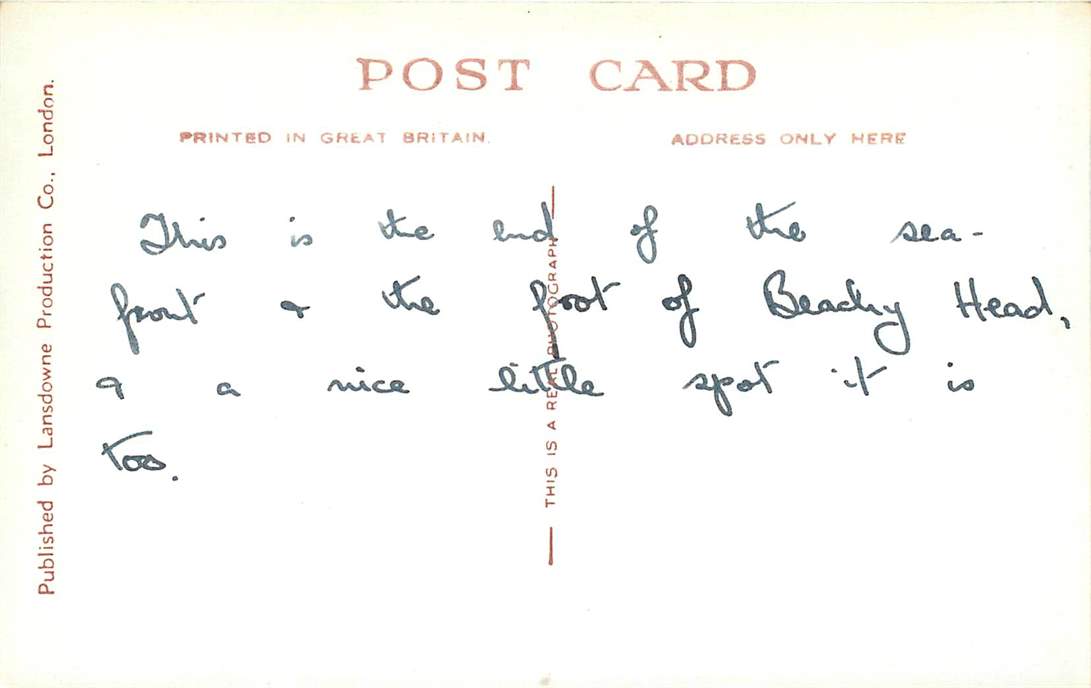 POST CARD
PRINTED IN GREAT BRITAIN.
ADDRESS ONLY HERE
This is the end of the sea-
front & the foot of Beachy Head,
& a nice little spot it is
too.
THIS IS A REAL PHOTOGRAPH
Published by Lansdowne Production Co., London.